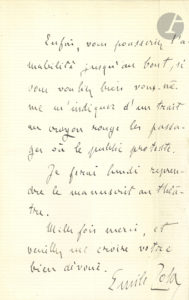 Enfin, vous pousseriez l'a-
mabilité jusqu'au bout, si
vous vouliez bien vous-mê-
me m'indiquer d'un trait
au crayon rouge les passa-
ges où le public proteste.
Je ferai lundi repren-
dre le manuscrit au théâ-
tre.
Mille fois merci, et
veuillez me croire votre
bien dévoué.
Emile Zola